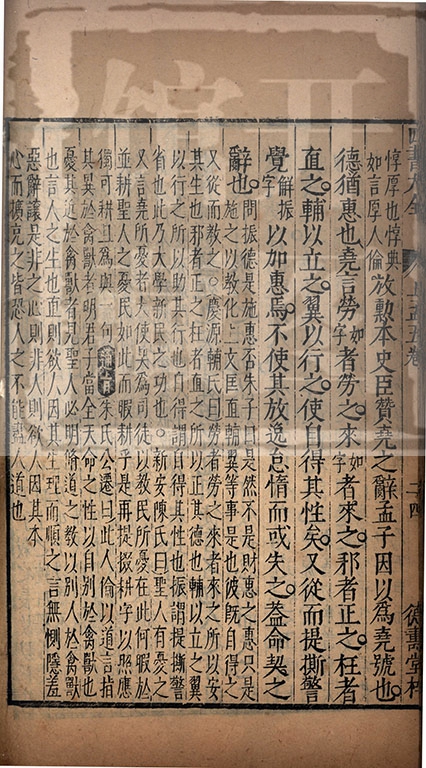 四書大全 上孟五卷 二十四 德壽堂梓
惇厚也惇典
如言厚人倫
放勳本史臣贊堯之辭孟子因以為堯號也
德猶惠也堯言勞如字者勞之來如字者來之邪者正之枉者
直之輔以立之翼以行之使自得其性矣又從而提撕警
覺解振字以加惠焉不使其放逸怠惰而或失之葢命契之
辭也
問振德是施惠否朱子曰是然不是財惠之惠只是
施之以教化上文匡直輔翼等事是也彼既自得之
又從而教之慶源輔氏曰勞者勞之來者來之所以安
其生也邪者正之枉者直之所以正其德也輔以立之翼
以行之所以助其行也自得謂自得其性也振謂提撕警
省也此乃大學新民之功也新安陳氏曰聖人有憂之
又言堯所憂者夫使契為司徒以教民所憂在此何暇於
並耕聖人之憂民如此而暇耕乎是再提掇耕字以照應
獨可耕且為與一句通旨朱氏公遷曰此人倫以道言指
其異於禽獸者明君子當全天命之性以自別於禽獸也
憂其近於禽獸者見聖人必明脩道之教以別人於禽獸
也言人之生也直則欲人因其生理而順之言無惻隱羞
惡辭讓是非之心則非人則欲人因其本
心而擴充之皆恐人之不能盡人道也